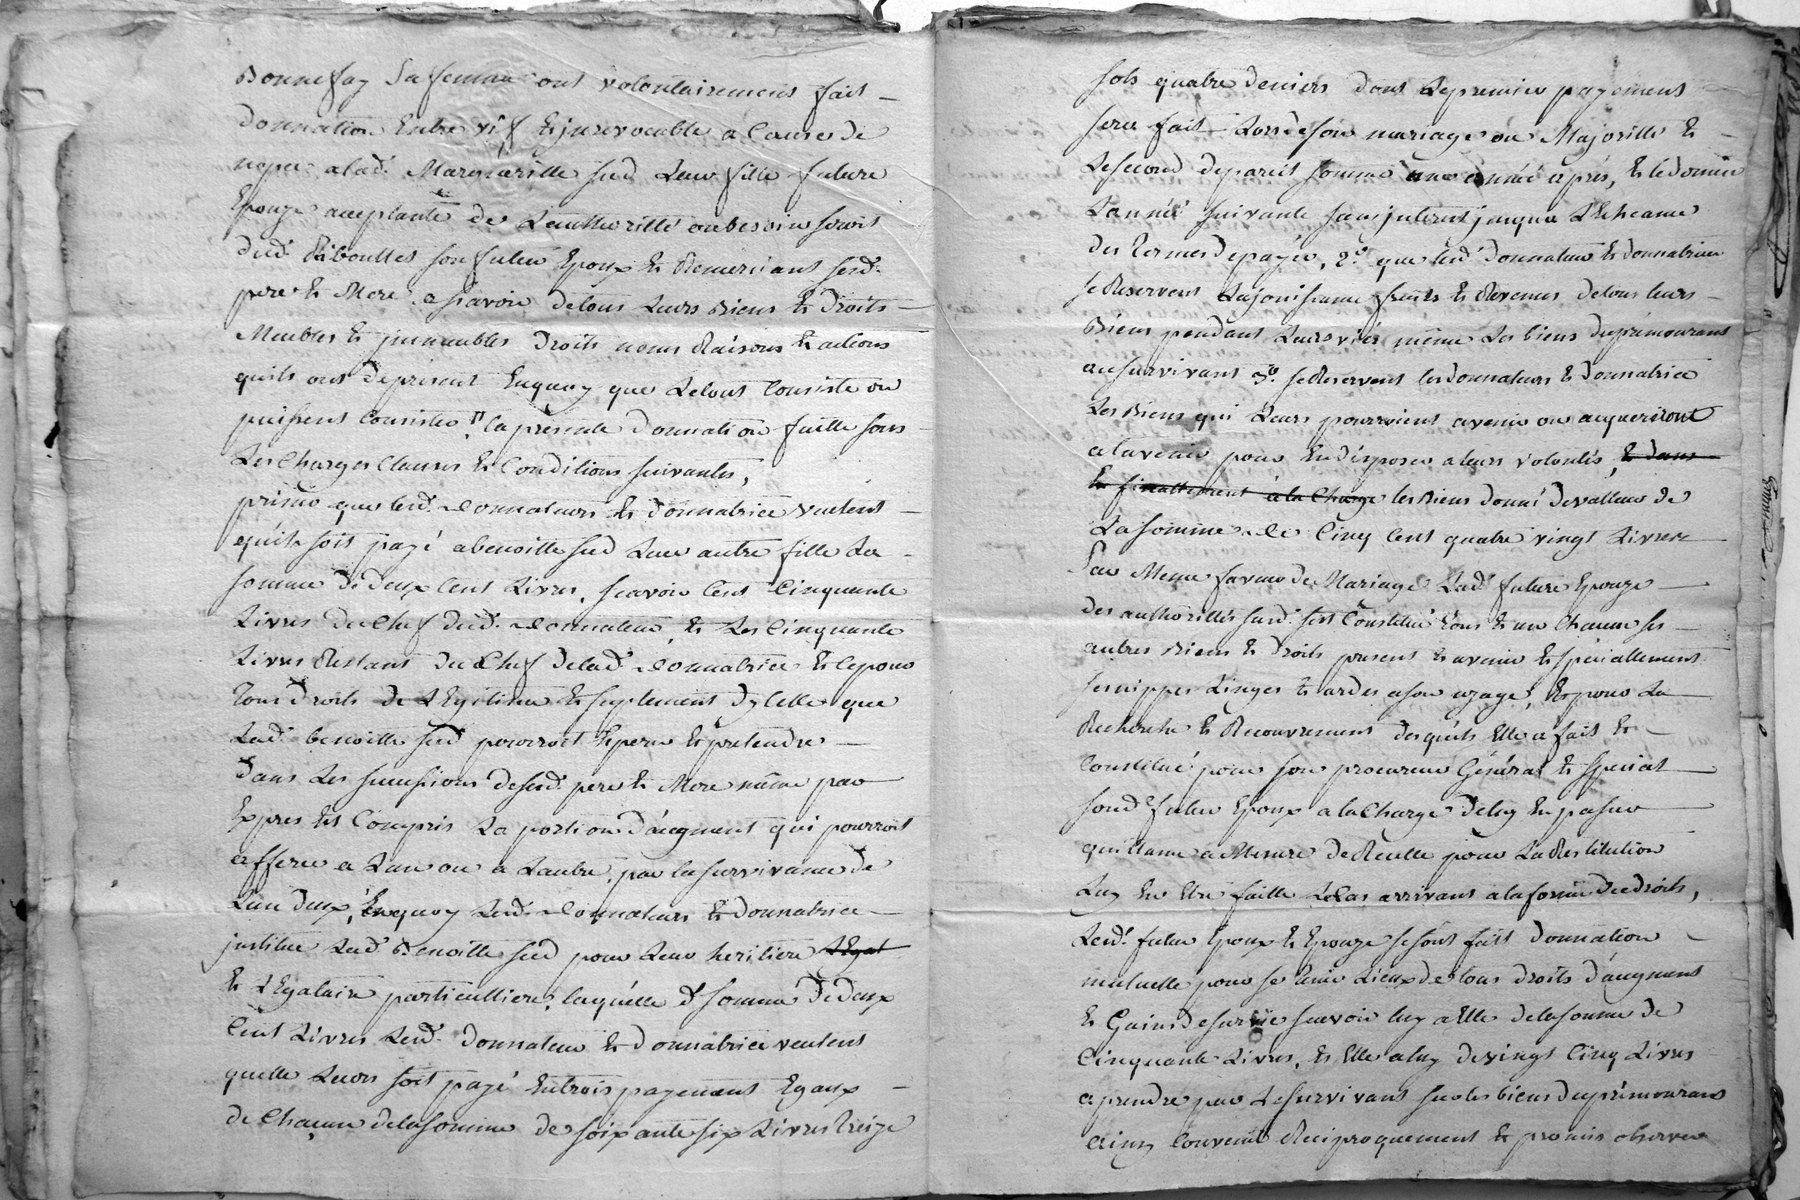 Bonnefoy Sa femme ont volontairement fait
Donnation Entre vif & jrrevocable a Cause de
nopce alad. Margueritte sud Leur fille future
Epouze acceptante de Lauthoritté ou besoin seroit
dud. Riboulles son futeur Epoux Et Remerciant sesd.
pere & Mere a sçavoir detous Leurs Biens & Droits
Meubles & jmmeubles Droits noms Raisons & actions
quils ont depresent Enquoy que Letout Consiste ou
puissent Consister la presente Donnation faitte sous
Les Charges Clauses & Conditions suivantes,
primo que lesd. donnateurs & donnatrice veulent
quils soit payé abenoitte sud Leur autre fille La
somme de deux Cent Livres, scavoir Cent Cinquante
Livres du Chef dud. donnateur, & Les Cinquante
Livres Restant du Chef delad. donnatrice & Cepour
tous droits de Legitime & suplement dycelle que
Lad. benoitte sud pourroit Esperer & pretendre
dans Les successions desesd. pere & Mere même par
Expres Et Compris La portion d'augment qui pourroit
afferer a Lun ou a Lautre, par lasurvivance de
Lun deux, Enquoy Lesd. donnateurs & donnatrice
jnstitue Lad. Benoitte sud pour Leur heritiere Legat
& Legataire particulliere, laquelle d. somme de deux
Cent Livres Lesd. donnateur & donnatrice veulent
quelle Leurs soit payé Entrois payement Egaux
de Chacun delasomme de soixante six Livres treize
sols quatre deniers dont Lepremier payement
sera fait Lors deson mariage ou Majoritté &
Lesecond depareil somme une année après, & ledernier
Lannée suivante sans jnterest jusqua Lecheance
des termes depayer, 2º. que lesd. donnateur & donnatrice
se Reservent Lajouissance fruits & Revenus detous leurs
Biens pendant Leurs vies même Les biens duprémourant
ausurvivant 3º. se Reservent lesdonnateurs & donnatrice
Les Biens qui Leurs pourroient avenir ou acqueriront
alavenir pour En disposer aleurs volontés, & dans
Et finallement à la Charge les Biens donné devalleur de
La somme de Cinq Cent quatre vingt Livres
En Meme faveur de Mariage Lad. future Epouze
des authorittés susd. sest Constitué tous & un Chacun ses
autres Biens & droits present & avenir & specialement
ses nippes Linges & ardes ason uzage, Et pour La
Recherche & Recouvrement desquels Elle a fait &
Constitué pour son procureur Général & special
sond. futur Epoux a la Charge deluy En passer
quittance a Mesure de Recette pour La Restitution
Luy En Etre faitte Lecas arrivant alaforme du droits,
Lesd. futur Epoux & Epouze sesont fait Donnation
mutuelle pour se tenir Lieux de tous droits d'augment
& Gains desurvie scavoir luy a Elle de la somme de
Cinquante Livres, & Elle a luy de vingt Cinq Livres
aprendre par Lesurvivant sur les biens duprémourant
ainsy Convenu Reciproquement & promis observer